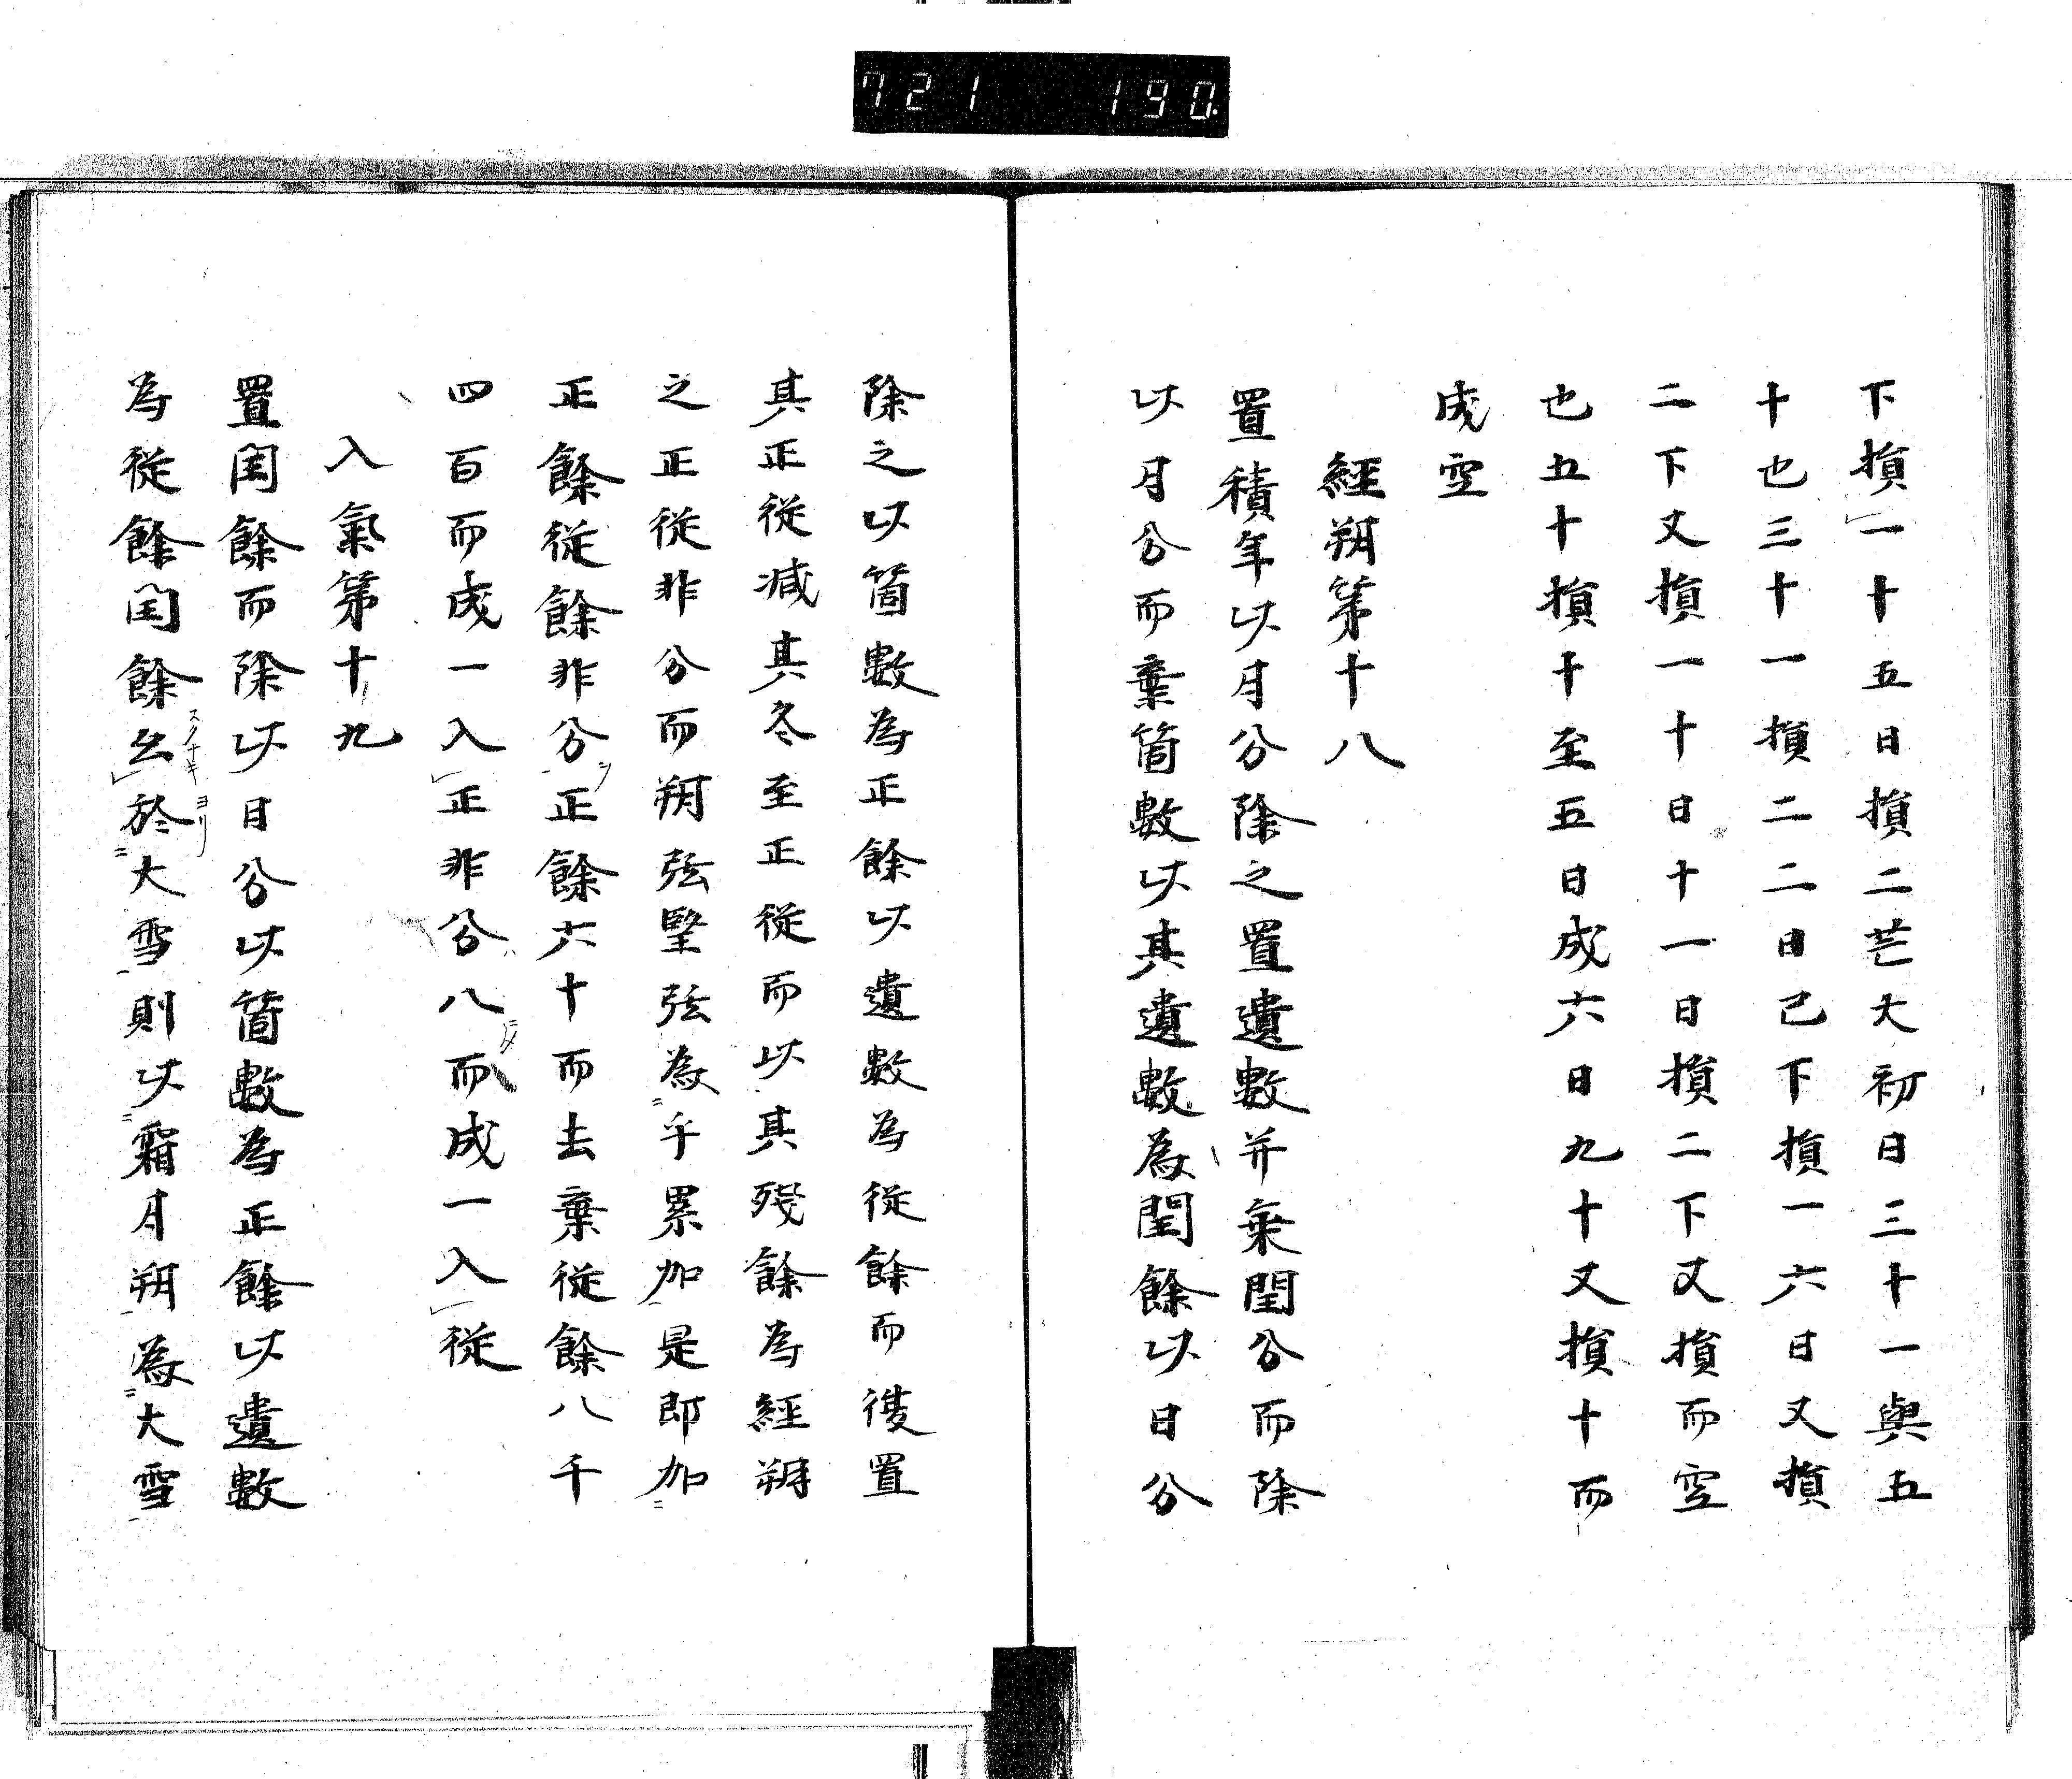 721 190.
下損一十五日損二芒大初日三十一與五
十也三十一損二二日己下損一六日又損
二下又損一十日十一日損二下又損而空
也五十損十至五日成六日九十又損十而
成空
經朔第十八
置積年以月分除之置遺數并棄閏分而除
以月分而棄箇數以其遺數為閏餘以日分
除之以箇數為正餘以遺數為從餘而復置
其正從減其冬至正從而以其殘餘為經朔
之正從非分而朔弦望弦為乎累加是即加
正餘從餘非分正餘六十而去棄從餘八千
四百而成一入正非分八而成一入從
入氣第十九
置閏餘而除以日分以箇數為正餘以遺數
為從餘閏餘幺於大雪則以霜月朔為大雪
スクナキ ヨリ